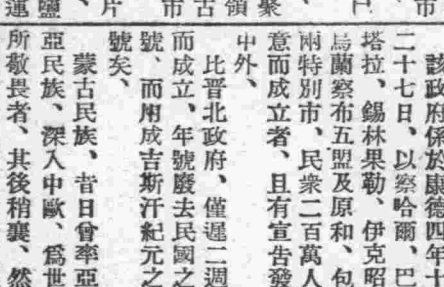 市
聚
領
古
市
片
鹽
運
該政府係於康德四年十
二十七日、以察哈爾、巴
塔拉、錫林果勒、伊克昭
烏蘭察布五盟及原和、包
兩特別市、民衆二百萬人
意而成立者、且有宣告發
中外、
比晋北政府、僅遲二週
而成立、年號廢去民國之
號、而用成吉斯汗紀元之
號矣、
蒙古民族、昔日曾率亞
亞民族、深入中歐、爲世
所敬畏者、其後稍襄、然